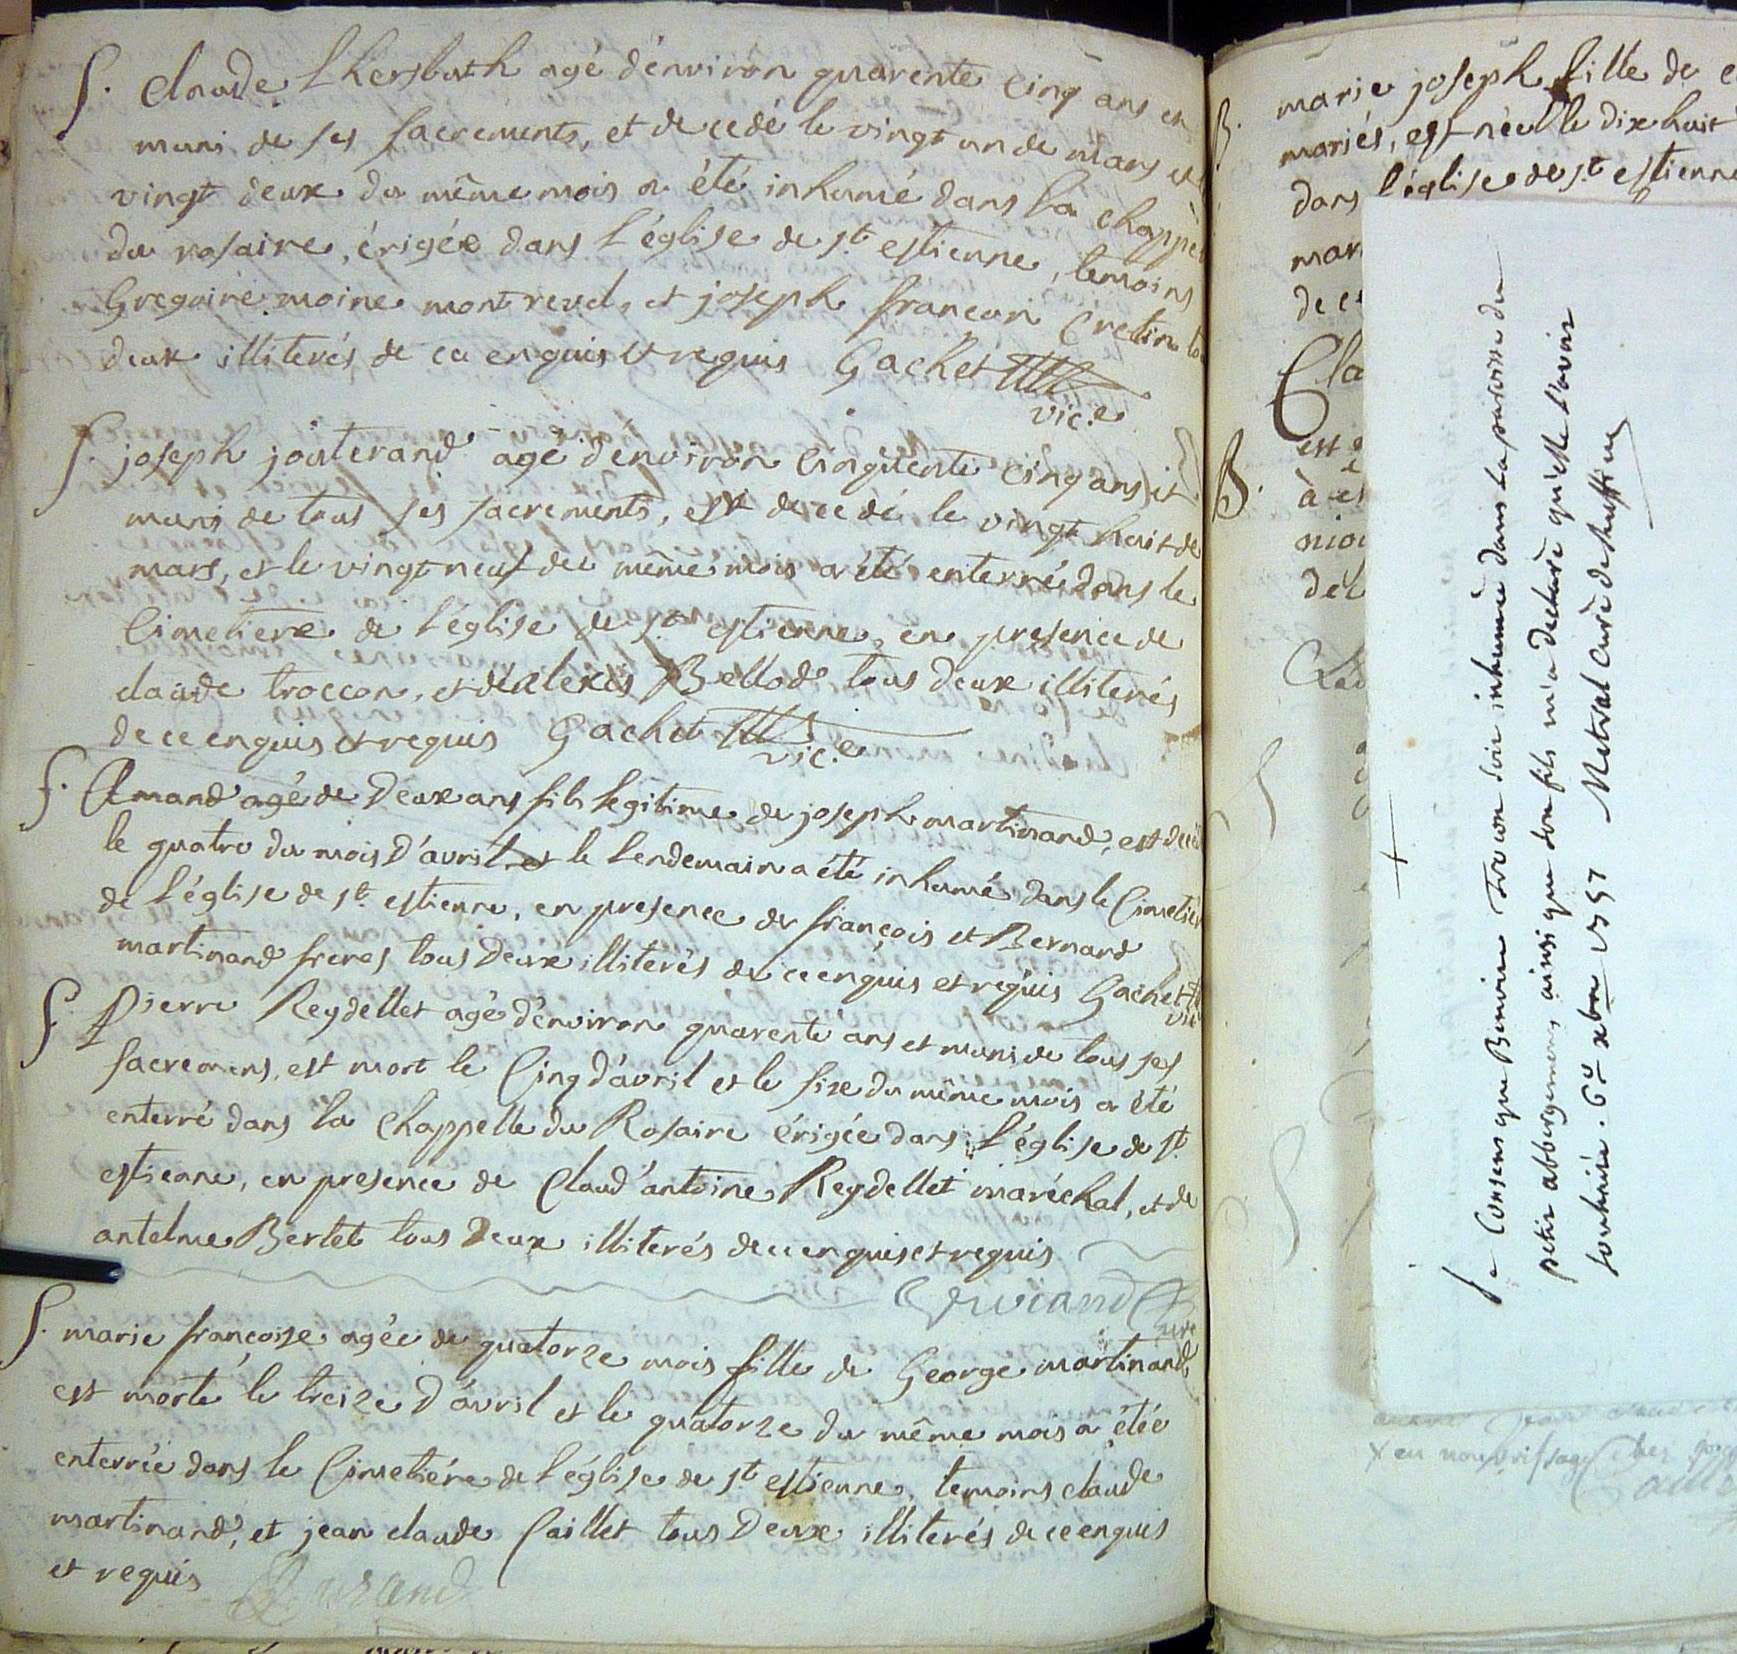 S. Claude Lhersbath agé d'environ quarente cinq ans et
muni de ses sacrements, et decedé le vingt un de mars et
vingt deux du même mois a été inhumé dans la chappe
du rosaire, érigée dans l'église de st estienne, temoins
Gregoire moine montreud, et joseph françois Cretin
deux illiterés de ce enquis et requis Gachet
vic.e
S. joseph jouterand agé d'environ cinquente cinq ans et
muni de tous ses sacrements, est decedé le vingt huit de
mars, et le vingt neuf du même mois a été enterré dans le
Cimetiere de l'église de st estienne, en presence de
claude troccon, et d'alexis Bellod tous deux illiterés
de ce enquis et requis Gachet
vic.e
S. Amand agé de Deux ans fils legitime de joseph martinand, est decé
le quatre du mois D'avril et le lendemain a été inhumé dans le Cimetier
de l'église de st estienne, en presence de françois et Bernard
martinand freres tous Deux illiterés de ce enquis et requis Gachet
vic
S. Pierre Reydellet agé d'environ quarente ans et muni de tous ses
sacremens, est mort le Cinq d'avril et le six du même mois a été
enterré dans la Chappelle du Rosaire érigée dans l'église de st
estienne, en presence de Claud'antoine Reydellet maréchal, et de
antelme Bertet tous Deux illiterés de ce enquis et requis
S. marie françoise agée de quatorze mois fille de George martinand
est morte le treize D'avril et le quatorze du même mois a étée
enterrée dans le Cimetiére de l'église de st estienne, temoins claude
martinand, et jean claude Caillet tous Deux illiterés de ce enquis
et requis Durand
B. marie joseph fille de
mariés, est née le dix huit
dans l'église de st estienne
mar
de ce
Cla
est
B. à
nio
de
Je Consens que Benoite trocon soit inhumée dans la paroisse du
petit abbergement ainsi que son fils m'a declaré qu'elle l'avoit
souhaité. 6e xbre 1757 Metral Curé de Ruffieu
x en nourrissage Chez